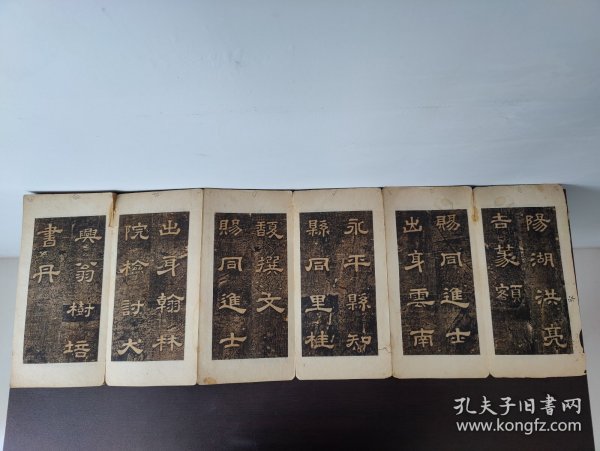 陽湖洪亮
吉篆額
賜同進士
出身雲南
永平縣知
縣同里桂
馥撰文
賜同進士
出身翰林
院檢討大
興翁樹培
書丹
孔夫子旧书网
www.kongfz.com